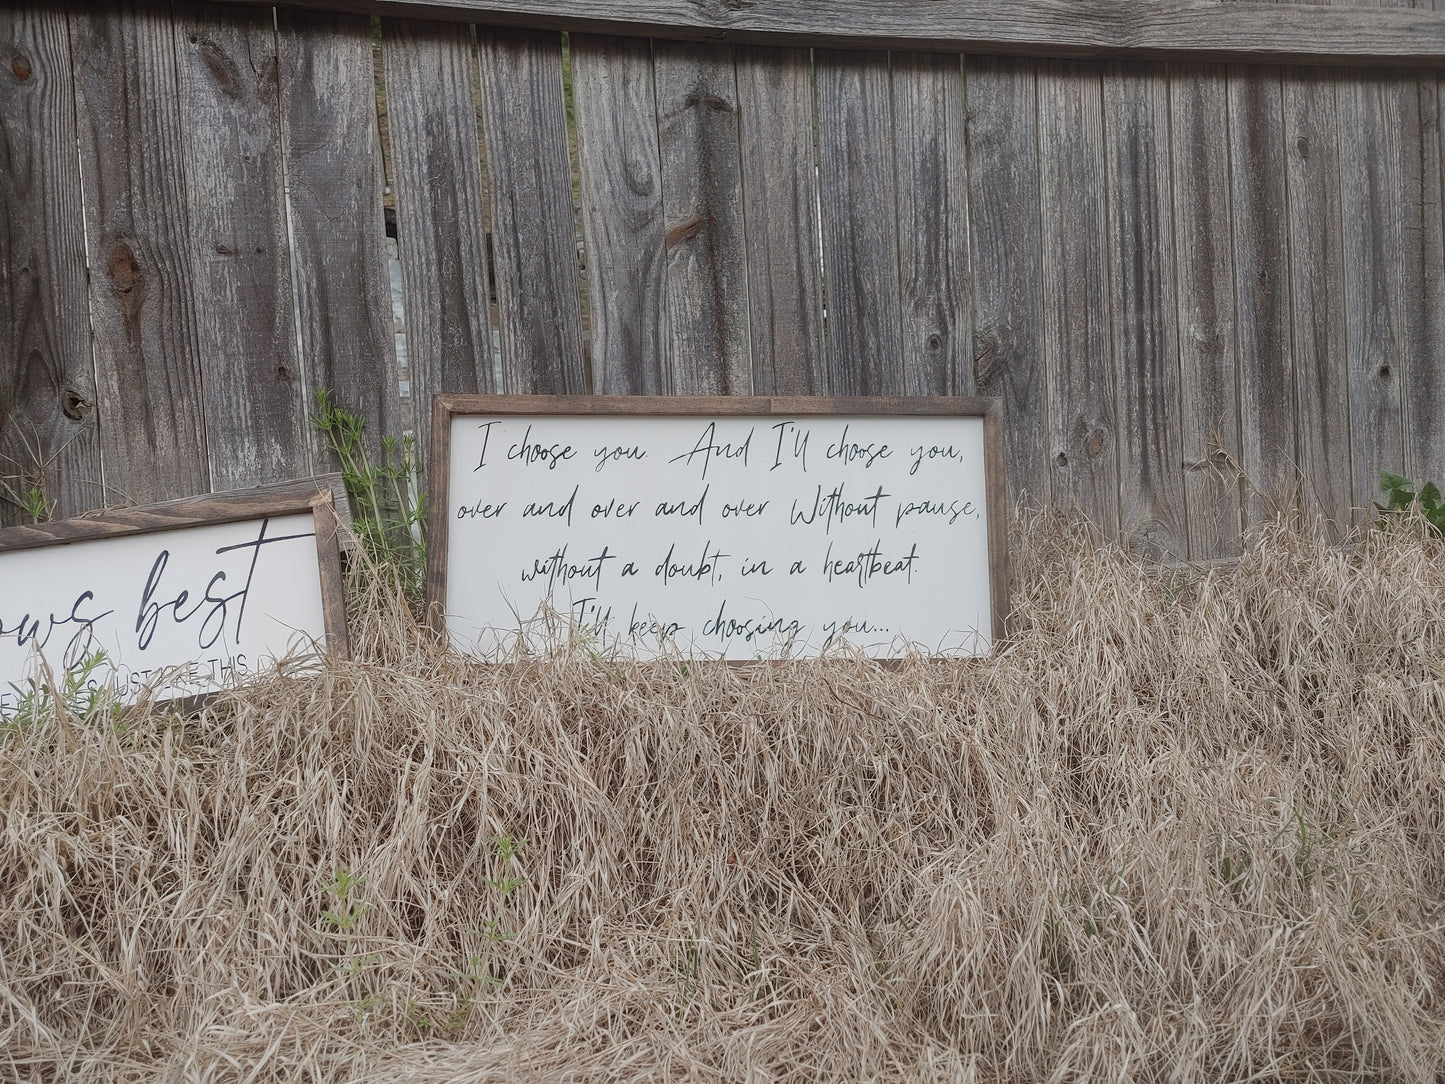 I choose you. And I'll choose you,
over and over and over Without pause,
without a doubt, in a heartbeat.
I'll keep choosing you...
best
THIS